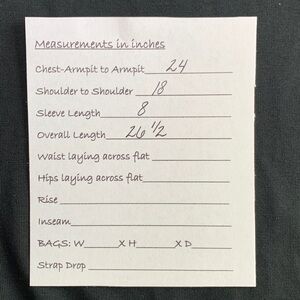 Measurements in inches
Chest-Armpit to Armpit 24
Shoulder to Shoulder 18
Sleeve Length 8
Overall Length 26 1/2
Waist laying across flat
Hips laying across flat
Rise
Inseam
BAGS: W X H X D
Strap Drop